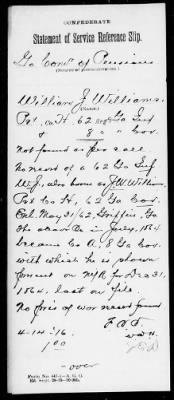 CONFEDERATE
Statement of Service Reference Slip.
Ga Com'r of Pensions
William J. Williams.
(Name)
Pvt. Co H. 62 Regt Ga Inf
& 8 " " Cav.
Not found as per call
No record of a 62 Ga Inf
W. J., also borne as J. W. William,
Pvt Co H, 62 Ga Cav.
Enl. May 31/62, Griffin, Ga
The above Co in July, 1864
became Co A, 8 Ga Cav
with which he is shown
present on M/R for Dec 31,
1864, last on file.
No pris of war record found
4-14-'16
100
over